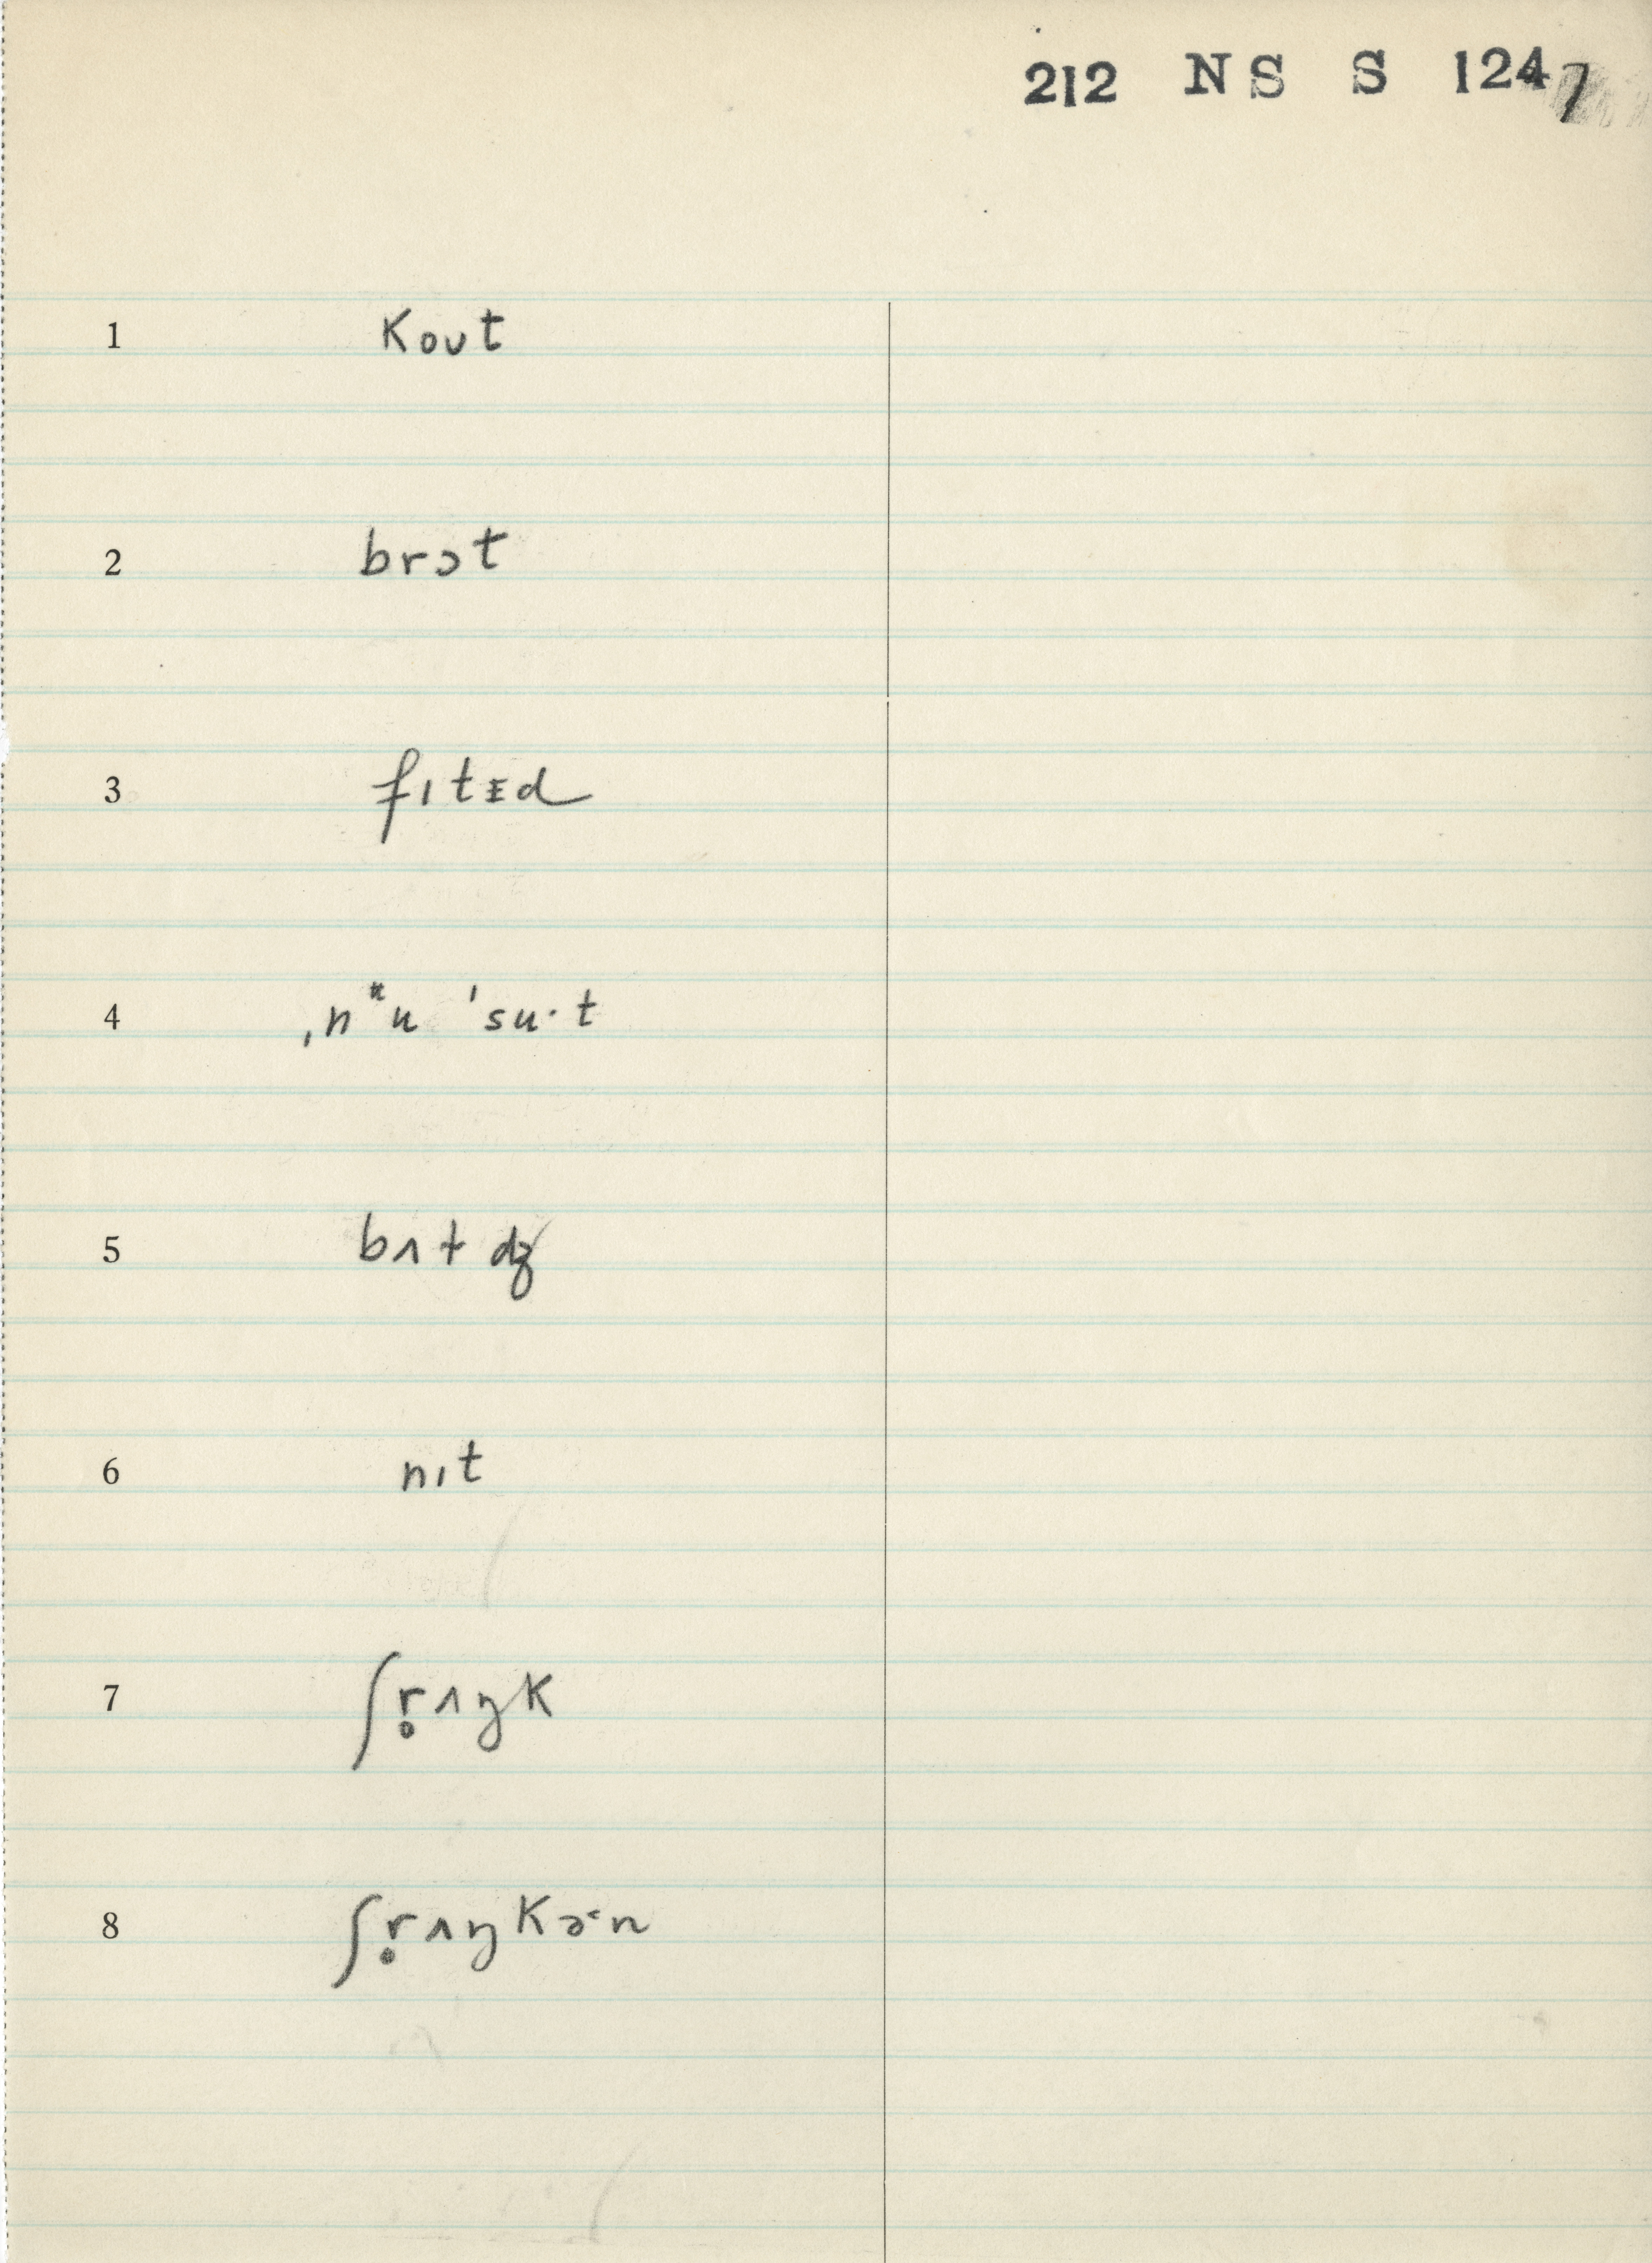 212 NS S 1247
1 kout
2 brɔt
3 fɪtɪd
4 ˌnᵻu ˈsu·t
5 bʌt dʒ
6 nɪt
7 ʃr̥ʌŋk
8 ʃr̥ʌŋkə˞n